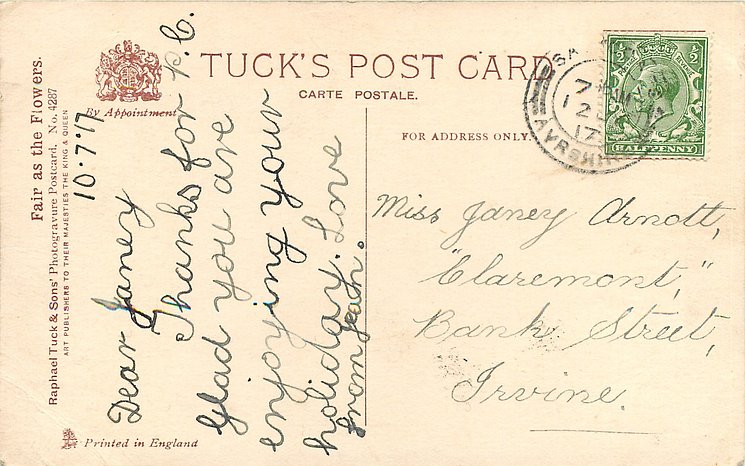 Fair as the Flowers.
Raphael Tuck & Sons' Photogravure Postcard, No. 4287
ART PUBLISHERS TO THEIR MAJESTIES THE KING & QUEEN
By Appointment
TUCK'S POST CARD
CARTE POSTALE.
FOR ADDRESS ONLY.
10.7.17
Dear Janey
Thanks for P.C.
Glad you are
enjoying your
holiday. Love
from Jean.
Miss Janey Arnott,
"Claremont,"
Bank Street,
Irvine
AYRSHIRE
7
12
17
½
½
POSTAGE
REVENUE
HALFPENNY
Printed in England